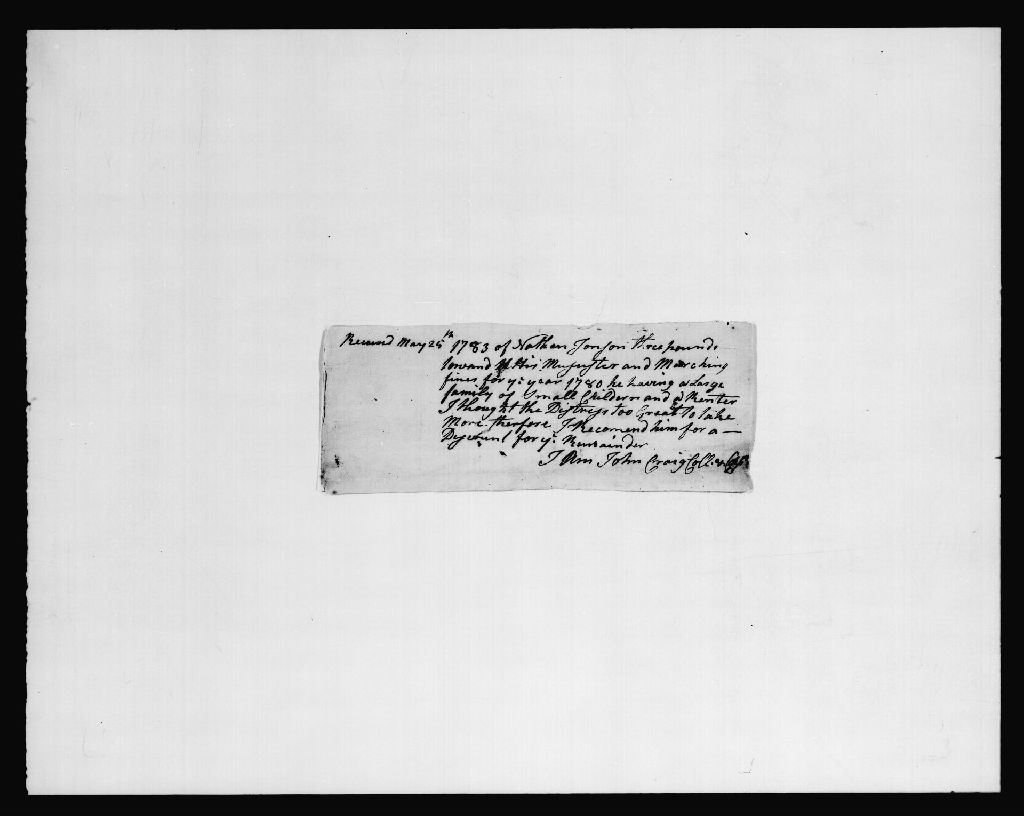 Received May 25th 1783 of Nathan Jonson three pounds
toward His Muster and Marching
fines for ye year 1780 he having a Large
family of Small Childern and a Renter
I thought the Distress too Great to take
More therfore I Recomend him for a —
Discount for ye Remainder
I Am John Craig Coll.